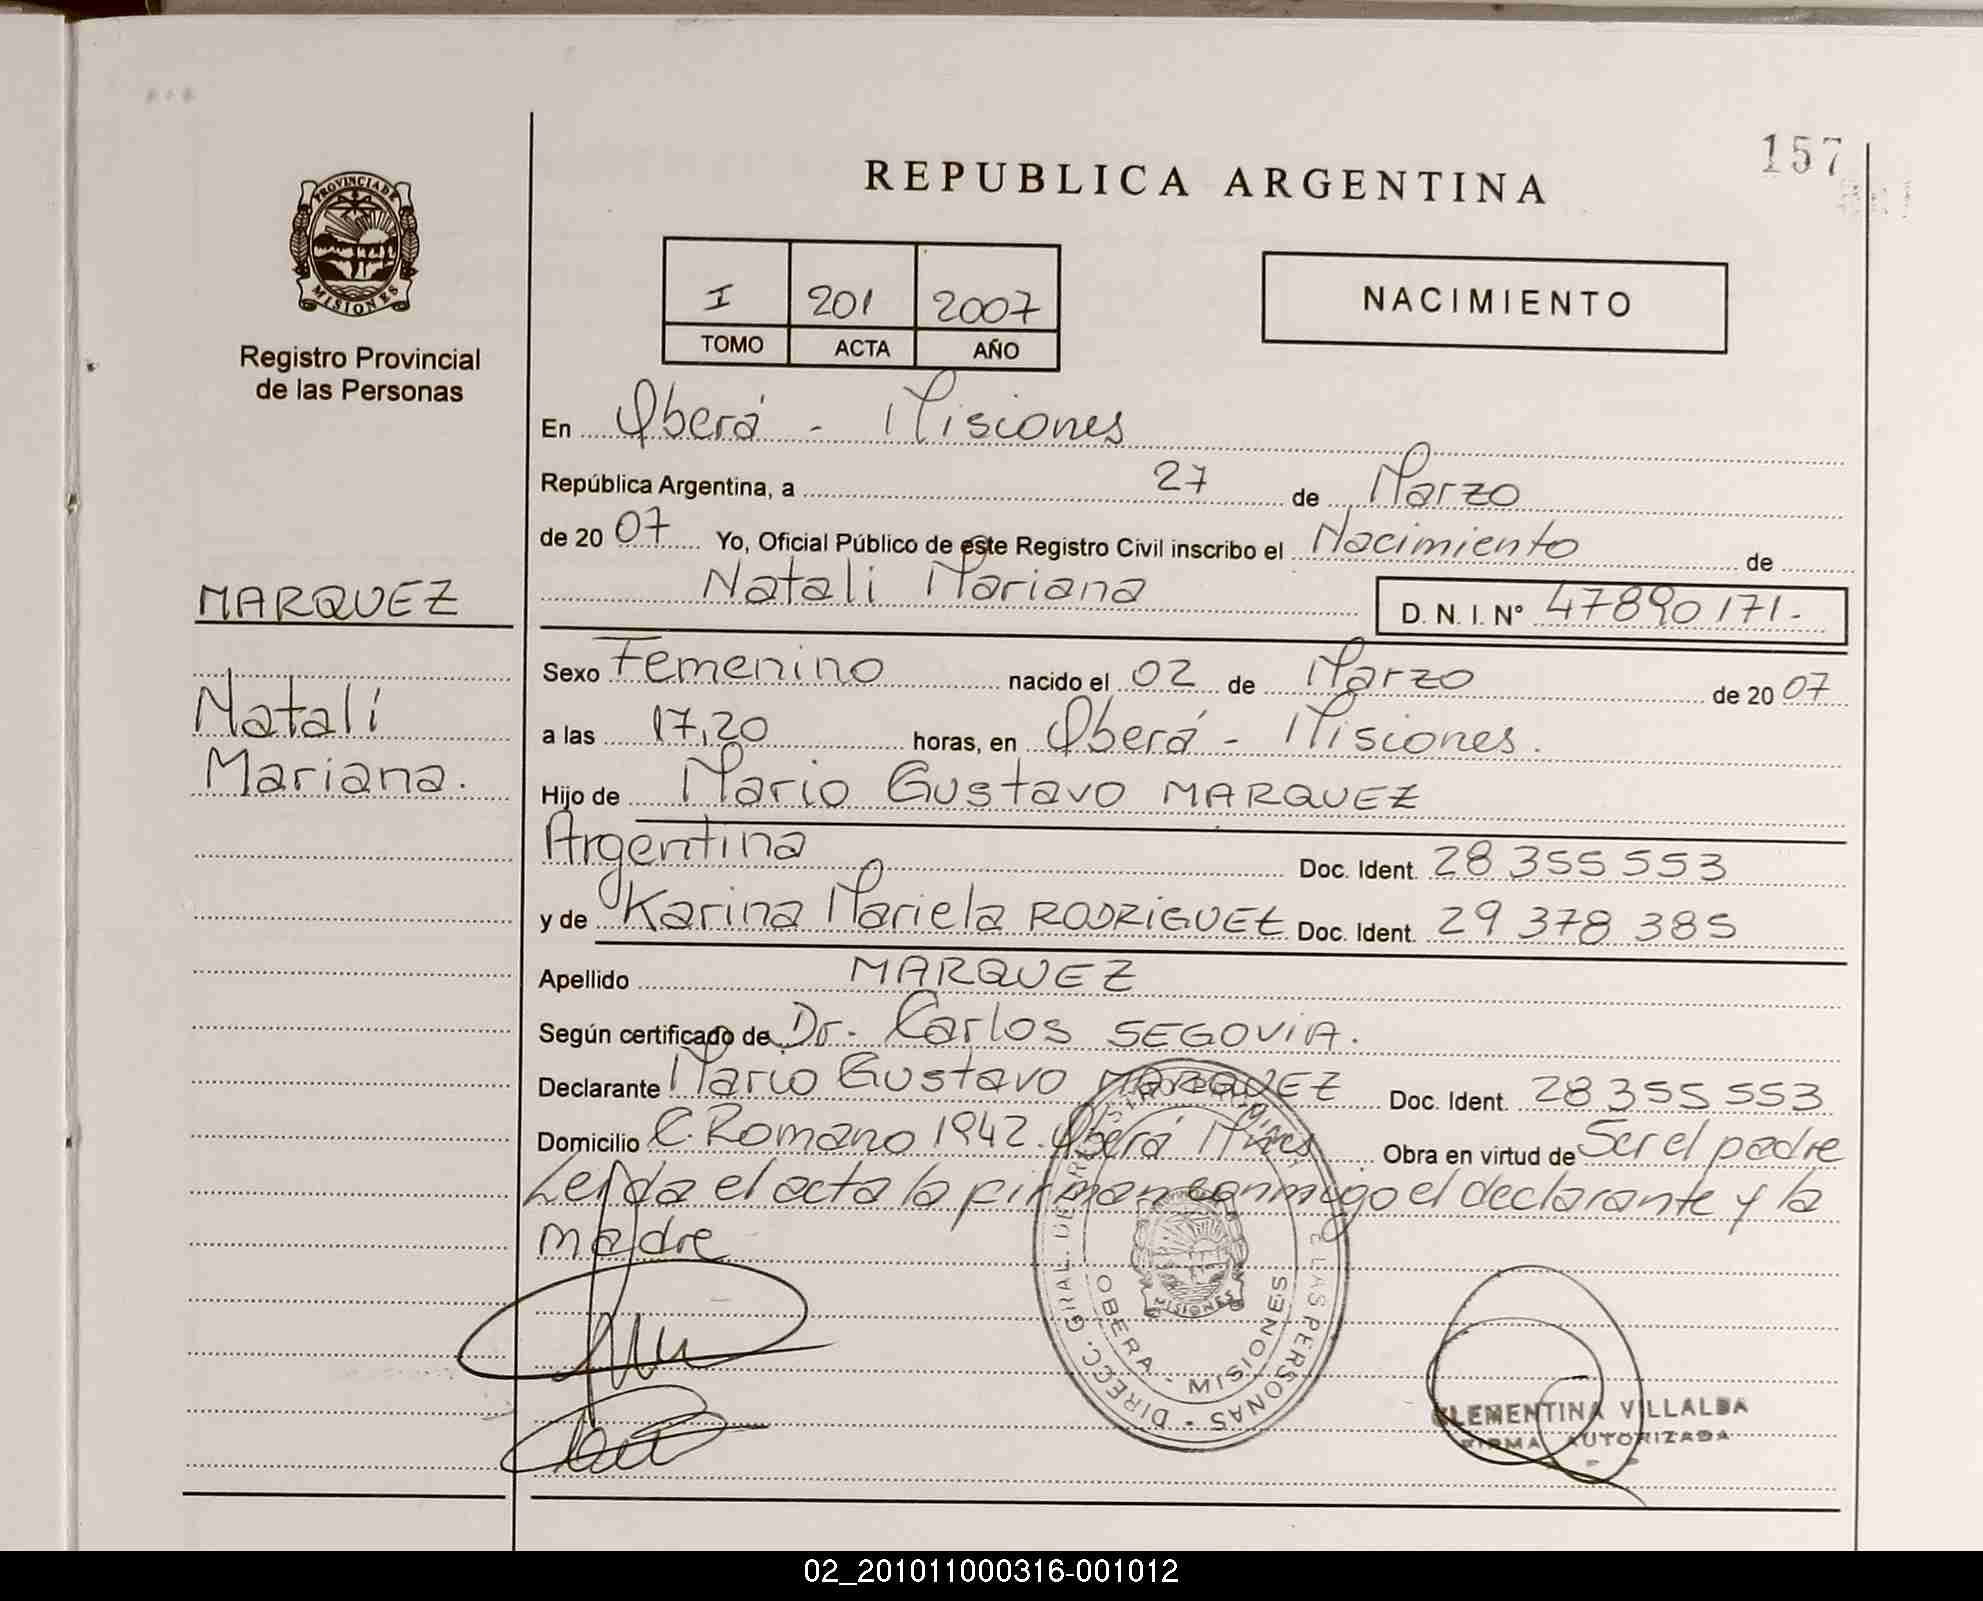 157
REPUBLICA ARGENTINA
PROVINCIA DE
MISIONES
Registro Provincial
de las Personas
I 201 2007
TOMO ACTA AÑO
NACIMIENTO
En Oberá - Misiones
República Argentina, a 27 de Marzo
de 20 07 Yo, Oficial Público de este Registro Civil inscribo el Nacimiento de
Natali Mariana D. N. I. Nº 47890171-
MARQUEZ
Natalí
Mariana.
Sexo Femenino nacido el 02 de Marzo de 20 07
a las 17,20 horas, en Oberá - Misiones.
Hijo de Mario Gustavo MARQUEZ
Argentina Doc. Ident. 28 355 553
y de Karina Mariela RODRIGUEZ Doc. Ident. 29 378 385
Apellido MARQUEZ
Según certificado de Dr. Carlos SEGOVIA.
Declarante Mario Gustavo MARQUEZ Doc. Ident. 28 355 553
Domicilio C. Romano 1942. Oberá Mnes. Obra en virtud de Ser el padre
Leída el acta la firman conmigo el declarante y la
madre
DIRECC. GRAL. DE LAS PERSONAS
OBERA - MISIONES
MISIONES
CLEMENTINA VILLALBA
FIRMA AUTORIZADA
02_201011000316-001012